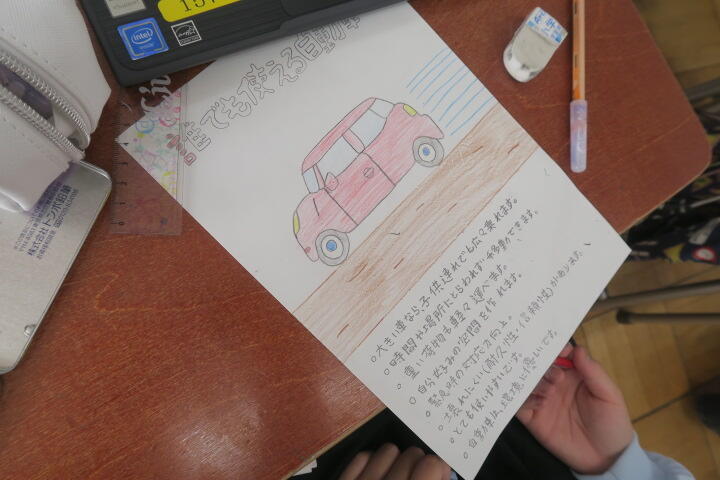 誰でも使える自動車
。大きい車なら、子供連れでも広々乗れます。
。時間や場所にとらわれず、移動ができます。
。重い荷物も軽々運べます。
。自分好みの空間を作れます。
。緊急時の対応力向上。
。壊れにくい(耐久性・信頼性)があります。
。とても使いやすいです。
。自動車は、環境に優しいです。
intel
株式会社トンボ鉛筆